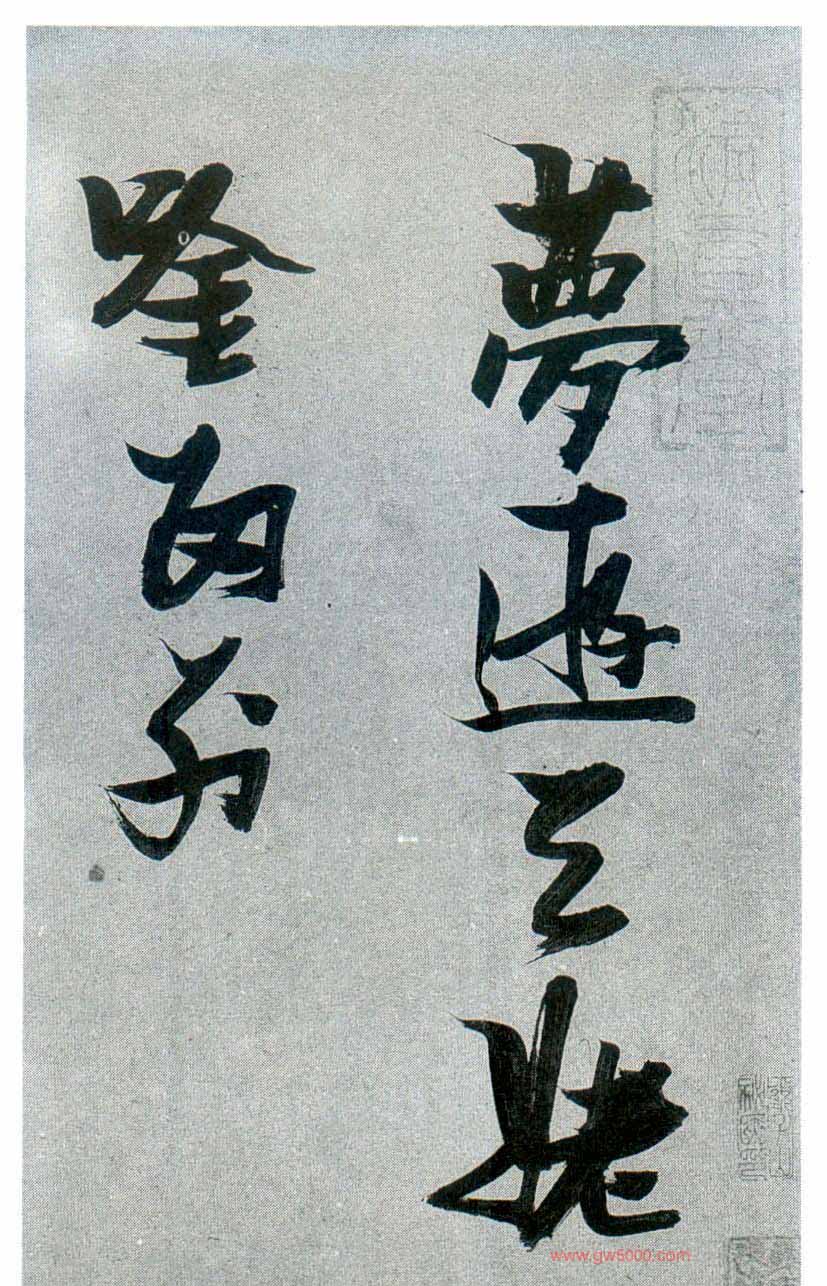 夢遊天姥
唫留别
www.gw5000.com